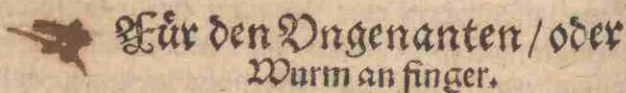 Für den Vngenanten / oder
Wurm an finger.